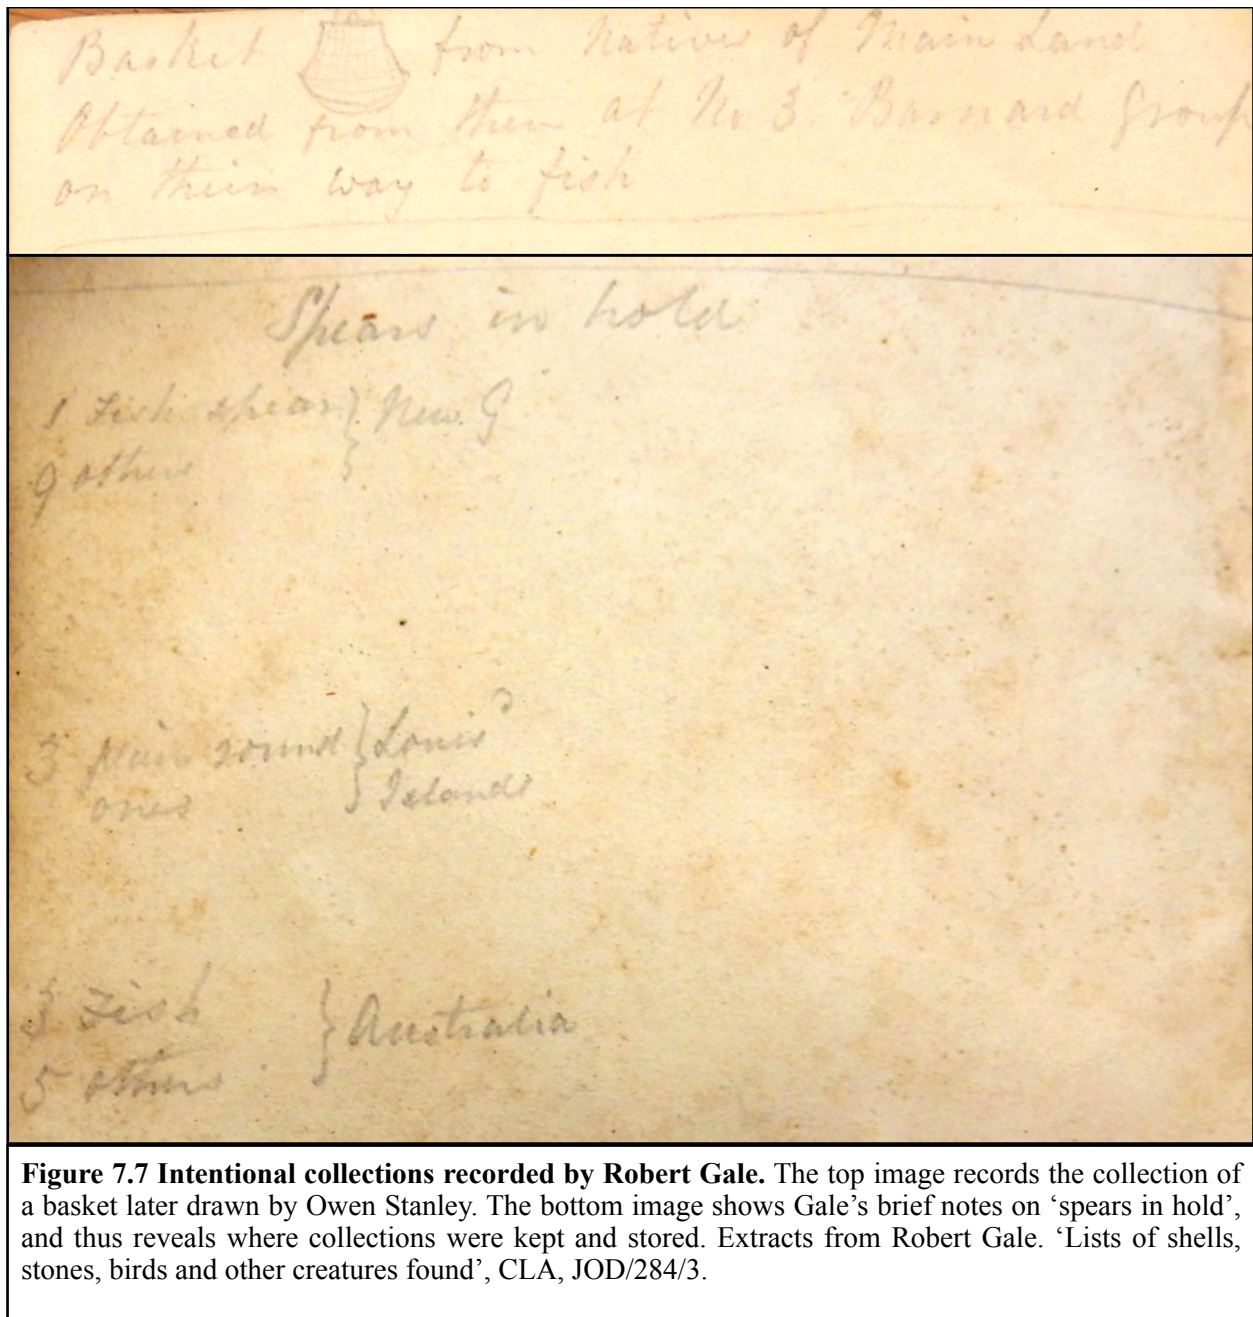 Basket from Natives of Main Land
Obtained from them at No 3 Barnard Group
on their way to fish
Spears in hold
1 Fish spear } New G
9 others
3 plain round } Louisᵈ
ones Islands
3 Fish } Australia
5 others
Figure 7.7 Intentional collections recorded by Robert Gale. The top image records the collection of
a basket later drawn by Owen Stanley. The bottom image shows Gale’s brief notes on ‘spears in hold’,
and thus reveals where collections were kept and stored. Extracts from Robert Gale. ‘Lists of shells,
stones, birds and other creatures found’, CLA, JOD/284/3.